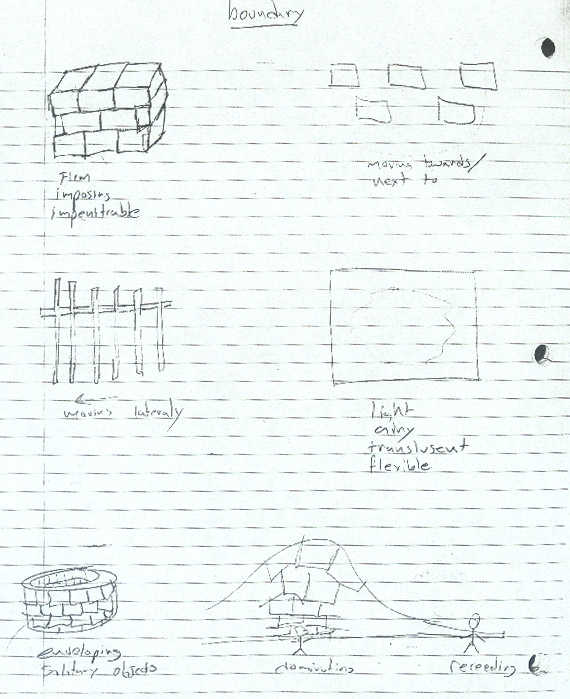 boundary
Firm
imposing
impenitrable
moving towards/
next to
moving lateraly
Light
airy
translusent
flexible
enveloping
Solitary objects
dominating
receeding